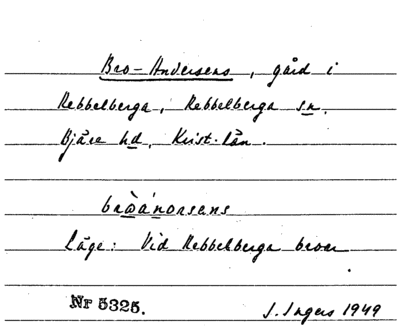 Bro-Andersens, gård i
Rebbelberga, Rebbelberga sn.
Bjäre hd, Krist. län.
Läge: Vid Rebbelberga broar
Nr 5325. J. Ingers 1949